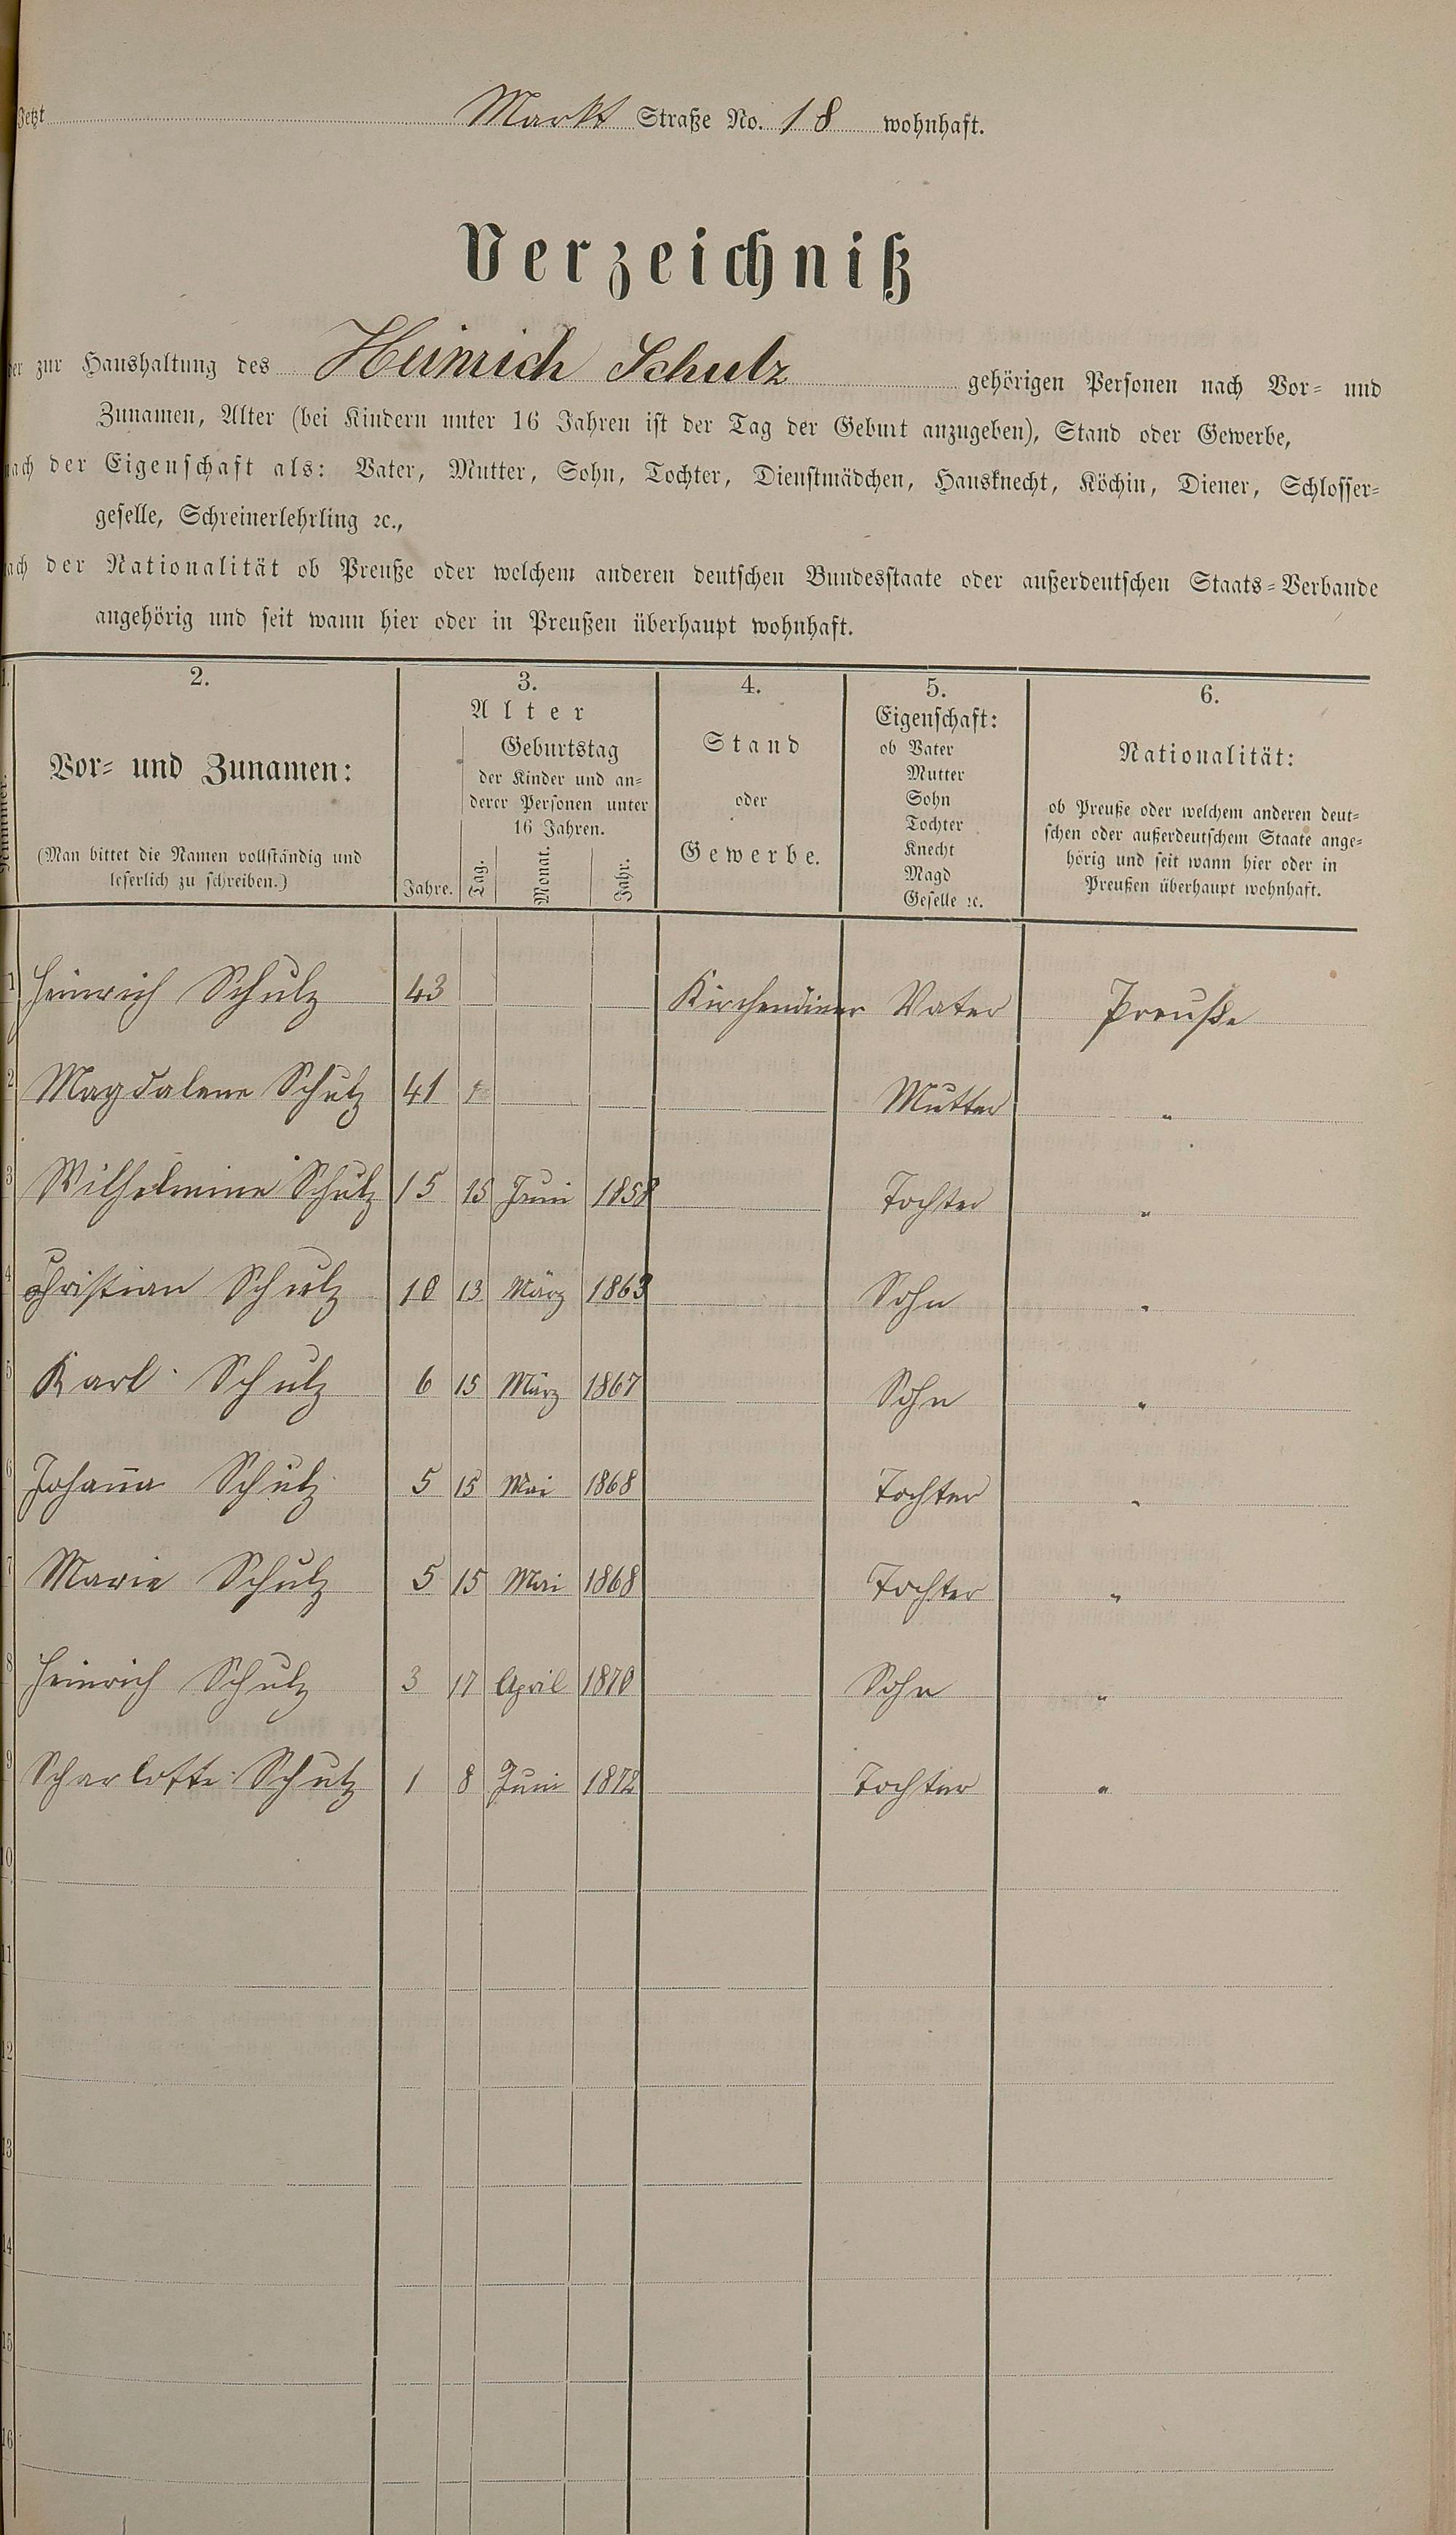 Jetzt Markt Straße No. 18 wohnhaft.
Verzeichniß
der zur Haushaltung des Heinrich Schulz gehörigen Personen nach Vor- und
Zunamen, Alter (bei Kindern unter 16 Jahren ist der Tag der Geburt anzugeben), Stand oder Gewerbe,
nach der Eigenschaft als: Vater, Mutter, Sohn, Tochter, Dienstmädchen, Hausknecht, Köchin, Diener, Schlosser-
geselle, Schreinerlehrling ꝛc.,
nach der Nationalität ob Preuße oder welchem anderen deutschen Bundesstaate oder außerdeutschen Staats-Verbande
angehörig und seit wann hier oder in Preußen überhaupt wohnhaft.
1.
Nummer.
2.
Vor- und Zunamen:
(Man bittet die Namen vollständig und
leserlich zu schreiben.)
3.
Alter
Jahre.
Geburtstag
der Kinder und an-
derer Personen unter
16 Jahren.
Tag. Monat. Jahr.
4.
Stand
oder
Gewerbe.
5.
Eigenschaft:
ob Vater
Mutter
Sohn
Tochter
Knecht
Magd
Geselle ꝛc.
6.
Nationalität:
ob Preuße oder welchem anderen deut-
schen oder außerdeutschem Staate ange-
hörig und seit wann hier oder in
Preußen überhaupt wohnhaft.
1 Heinrich Schulz 43 Kirchendiener Vater Preuße
2 Magdalene Schulz 41 Mutter "
3 Wilhelmine Schulz 15 15 Juni 1858 Tochter "
4 Christian Schulz 10 13 März 1863 Sohn "
5 Karl Schulz 6 15 März 1867 Sohn "
6 Johan̄a Schulz 5 15 Mai 1868 Tochter "
7 Marie Schulz 5 15 Mai 1868 Tochter "
8 Heinrich Schulz 3 17 April 1870 Sohn "
9 Scharlotte Schulz 1 8 Juni 1872 Tochter "
10
11
12
13
14
15
16